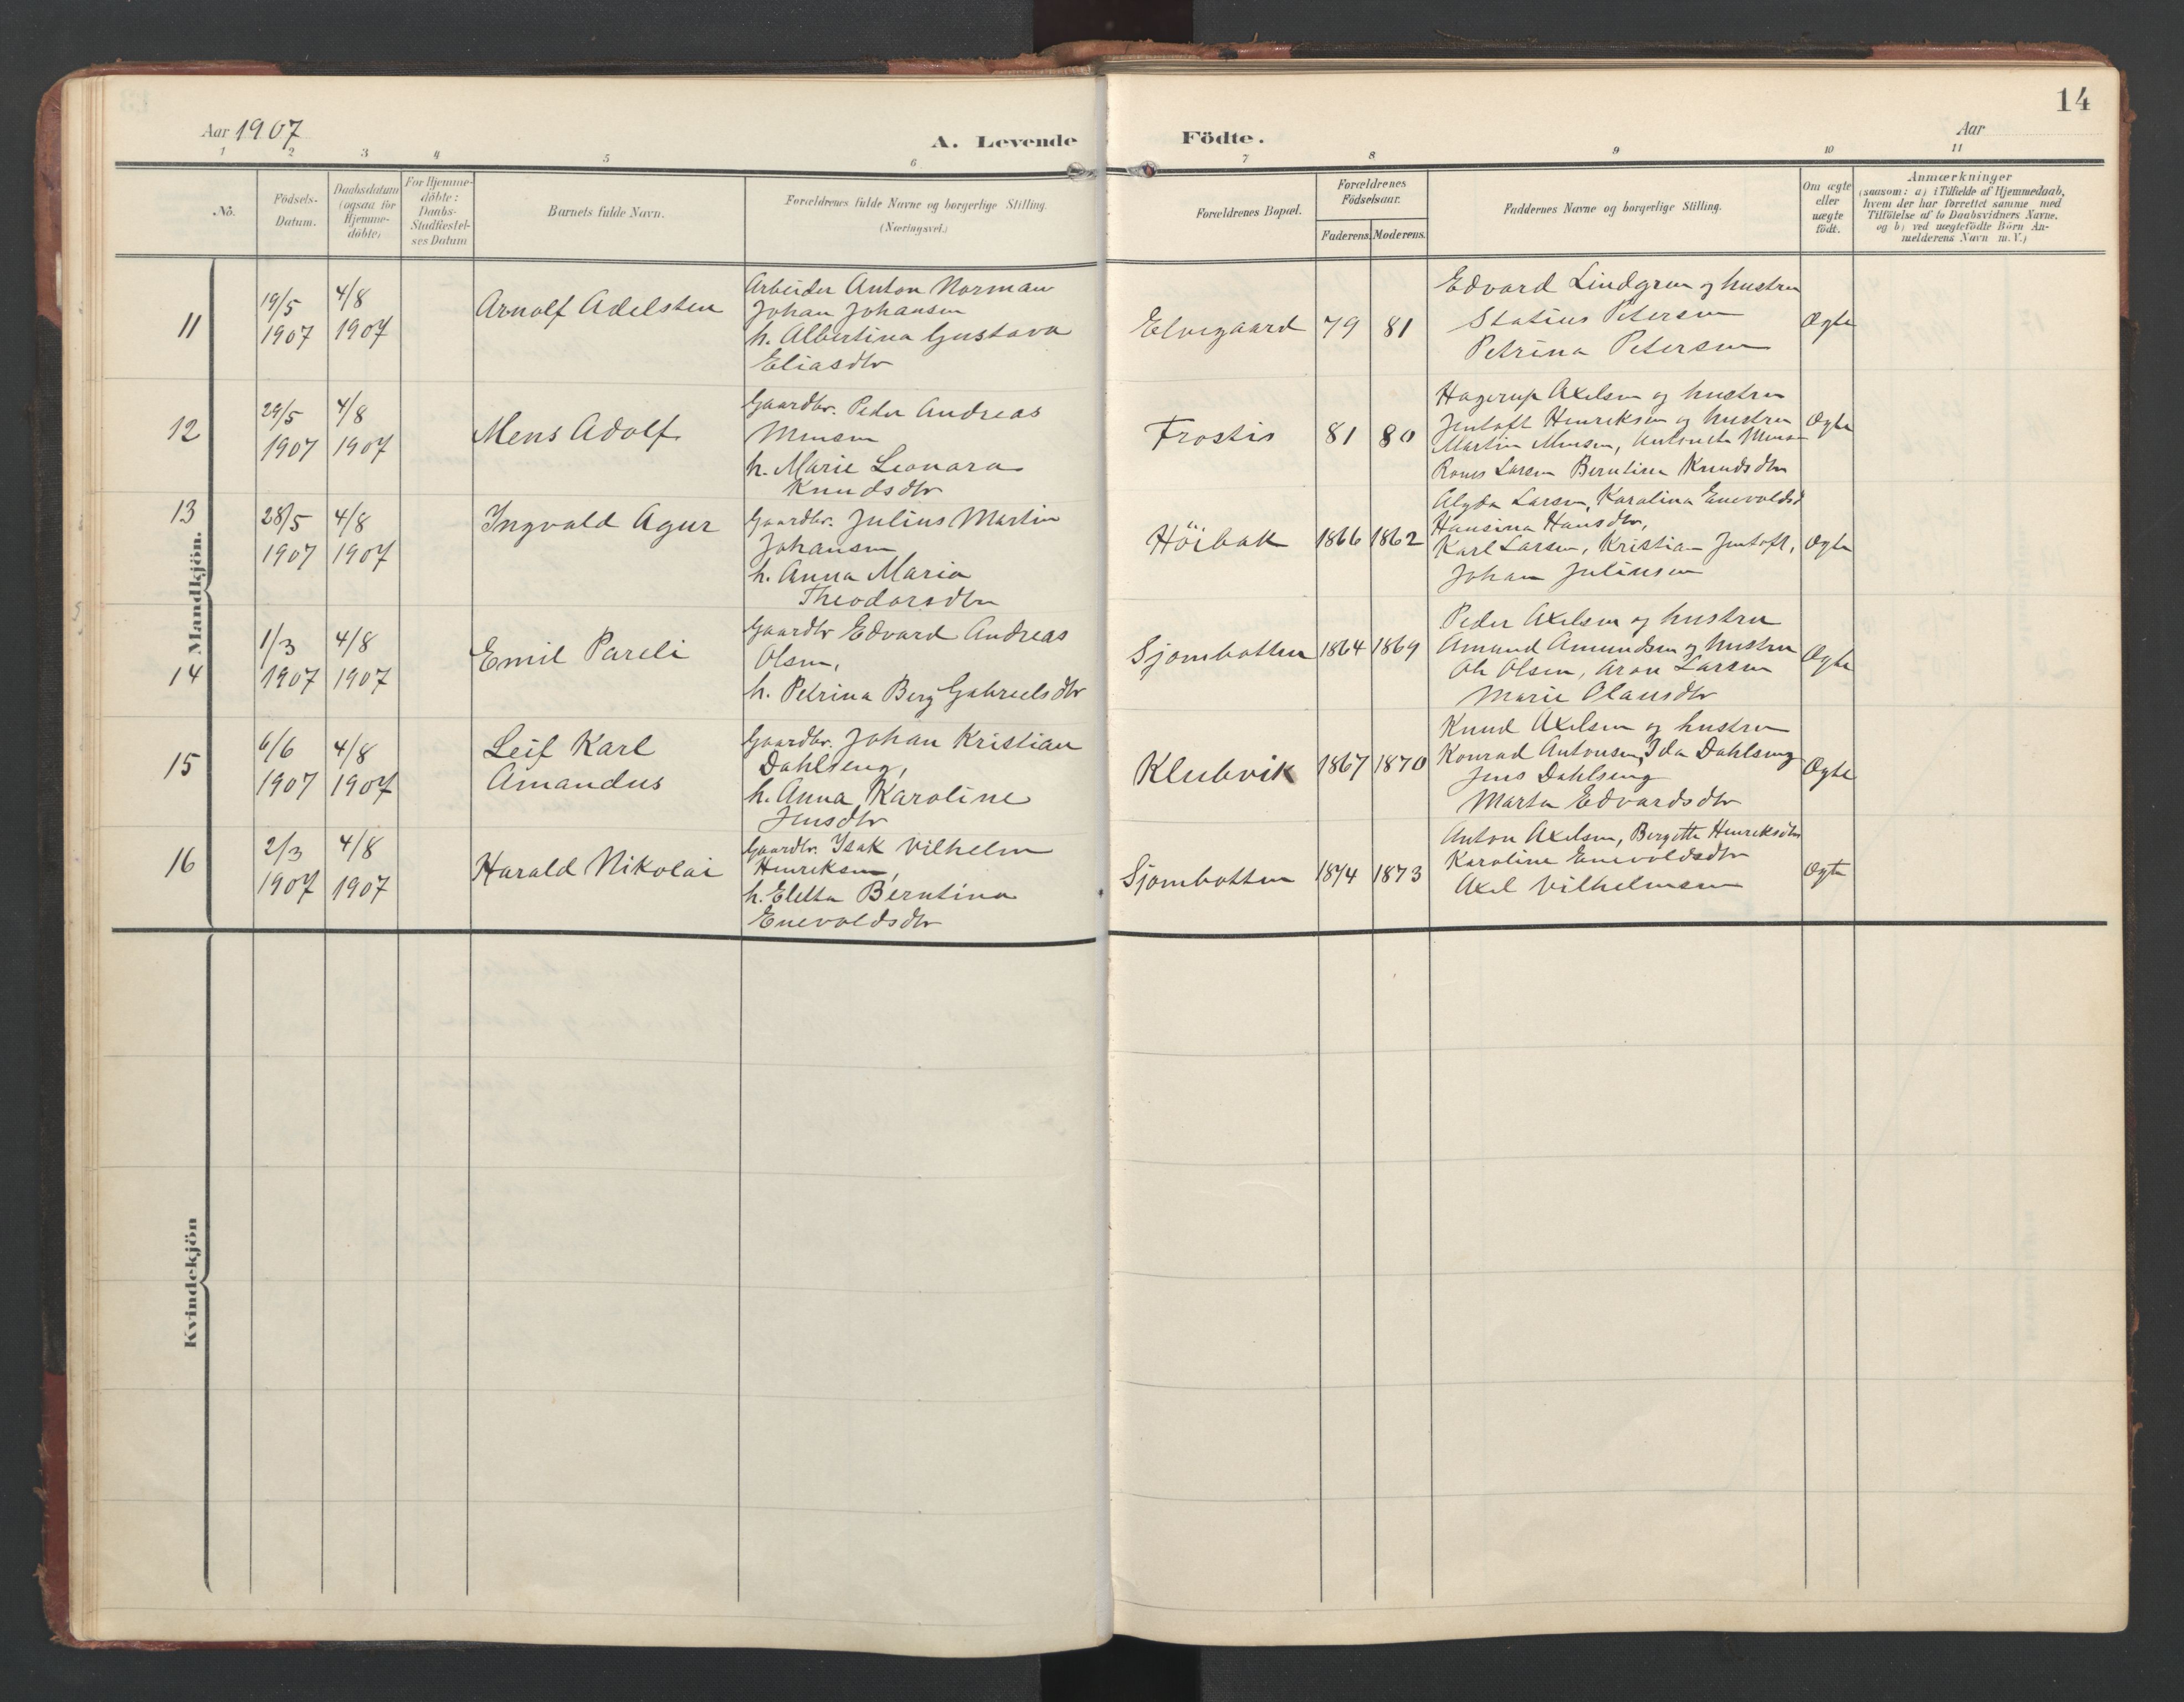 14
Aar 1907
A. Levende Födte.
Aar
1 2 3 4 5 6 7 8 9 10 11
No.
Födsels-
Datum.
Daabsdatum
(ogsaa for
Hjemme-
döbte)
For Hjemme-
döbte:
Daabs-
Stadfæstel-
ses Datum
Barnets fulde Navn.
Forældrenes fulde Navne og borgerlige Stilling.
(Næringsvei.)
Forældrenes Bopæl.
Forældrenes
Födselsaar.
Faderens. Moderens.
Faddernes Navne og borgerlige Stilling.
Om ægte
eller
uægte
födt.
Anmærkninger
(saasom: a) i Tilfælde af Hjemmedaab,
hvem der har forrettet samme med
Tilföielse af to Daabsvidners Navne.
og b) ved uægtefödte Börn An-
melderens Navn m. V.)
Mandkjön.
11
19/5
1907
4/8
1907
Arnolf Adelsten
Arbeider Anton Norman
Johan Johansen
h. Albertina Gustava
Eliasdtr
Elvegaard
79
81
Edvard Lindgren og hustru
Statius Petersen
Petrina Petersen
Ægte
12
29/5
1907
4/8
1907
Mens Adolf
Gaardbr. Peder Andreas
Mensen
h. Marie Leonara
Knudsdtr
Frostis
81
80
Hagerup Axelsen og hustru
Jentoft Henriksen og hustru
Martin Mensen, Antonete
Larsen Berntine Knudsdtr
Ægte
13
28/5
1907
4/8
1907
Ingvald Agur
Gaardbr. Julius Martin
Johansen
h. Anna Maria
Theodorsdtr
Höibak
1866
1862
Alyda Larsen, Karolina Enevoldsd
Hansina Hansdtr,
Karl Larsen, Kristian Jentoft,
Johan Juliussen
Ægte
14
1/3
1907
4/8
1907
Emil Pareli
Gaardbr Edvard Andreas
Olsen,
h. Petrina Berg Gabrielsdtr
Sjombotten
1864
1869
Peder Axelsen og hustru
Amund Amundsen og hustru
Ole Olsen, Aron Larsen
Marie Olausdtr
Ægte
15
6/6
1907
4/8
1907
Leif Karl
Amandus
Gaardbr. Johan Kristian
Dahlseng,
h. Anna Karoline
Jensdtr
Klubvik
1867
1870
Knud Axelsen og hustru
Konrad Antonsen, Ida Dahlseng
Jens Dahlseng
Marta Edvardsdtr
Ægte
16
2/3
1907
4/8
1907
Harald Nikolai
Gaardbr. Isak Vilhelm
Henriksen,
h. Eletta Berntina
Enevoldsdtr
Sjombotten
1874
1873
Anton Axelsen, Bergette Henriksdtr
Karoline Enevoldsdtr
Axel Vilhelmsen
Ægte
Kvindekjön